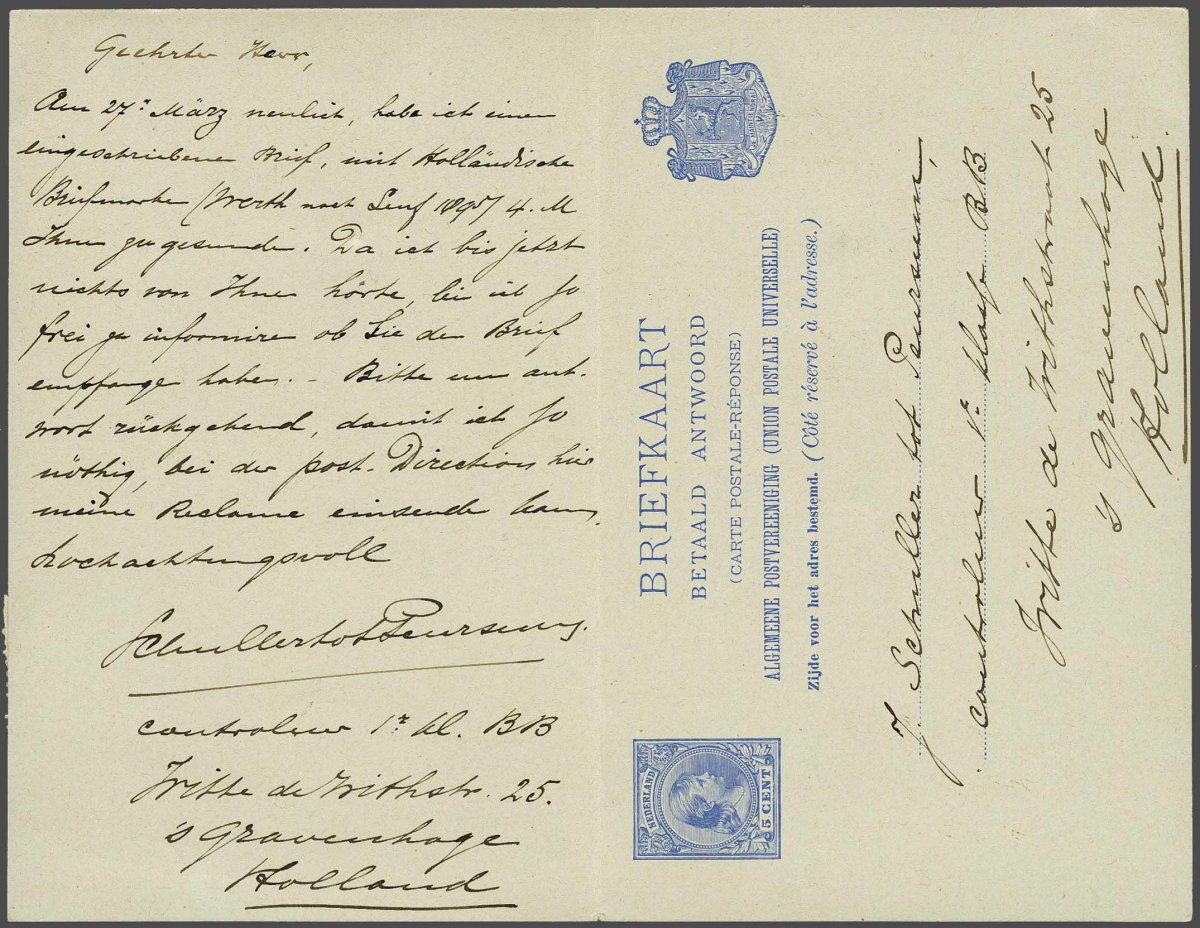 Geehrter Herr,
Am 27r März neulich, habe ich einen
eingeschriebenen Brief, mit Holländische
Briefmarke (Werth nach Senf 1895/ 4. M
Ihnen zugesunden. Da ich bis jetzt
nichts von Ihnen hörte, bin ich so
frei zu informiren ob Sie den Brief
empfangen haben. – Bitte um ant-
wort rückgehend, damit ich so
nöthig, bei der post-Direction hier
meine Reclame einsenden kann.
Hochachtungsvoll
Schuller tot Peursum.
controleur 1r kl. BB
Witte de Withstr. 25.
's Gravenhage
Holland
BRIEFKAART
BETAALD ANTWOORD
(CARTE POSTALE-RÉPONSE)
ALGEMEENE POSTVEREENIGING (UNION POSTALE UNIVERSELLE)
Zijde voor het adres bestemd. (Côté réservé à l'adresse.)
JE MAINTIENDRAI
NEDERLAND
5 CENT
J Schuller tot Peursum,
controleur 1r klasse BB
Witte de Withstraat 25
's Gravenhage
Holland.